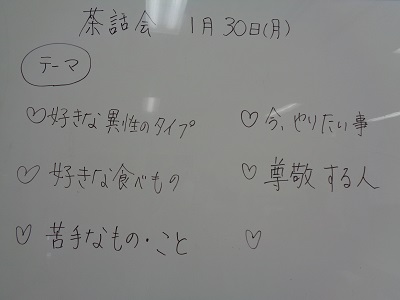 茶話会 1月30日(月)
テーマ
♡好きな異性のタイプ
♡好きな食べもの
♡苦手なもの・こと
♡今、やりたい事
♡尊敬する人
♡